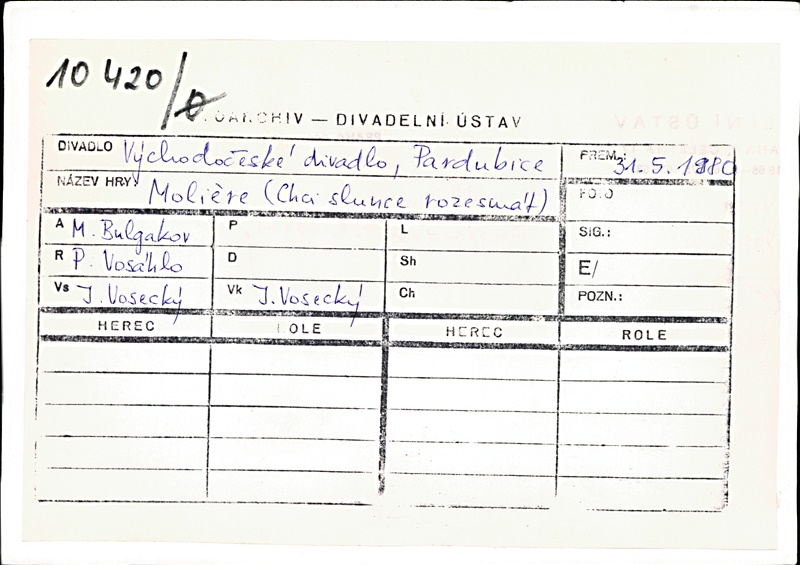 10 420/D
OARCHIV — DIVADELNÍ ÚSTAV
DIVADLO Východočeské divadlo, Pardubice
PREM.: 31.5.1980
NÁZEV HRY Molière (Chci slunce rozesmát)
FOTO
A M. Bulgakov P L SIG.:
R P. Vosáhlo D Sh E/
Vs J. Vosecký Vk J. Vosecký Ch POZN.:
HEREC ROLE HEREC ROLE